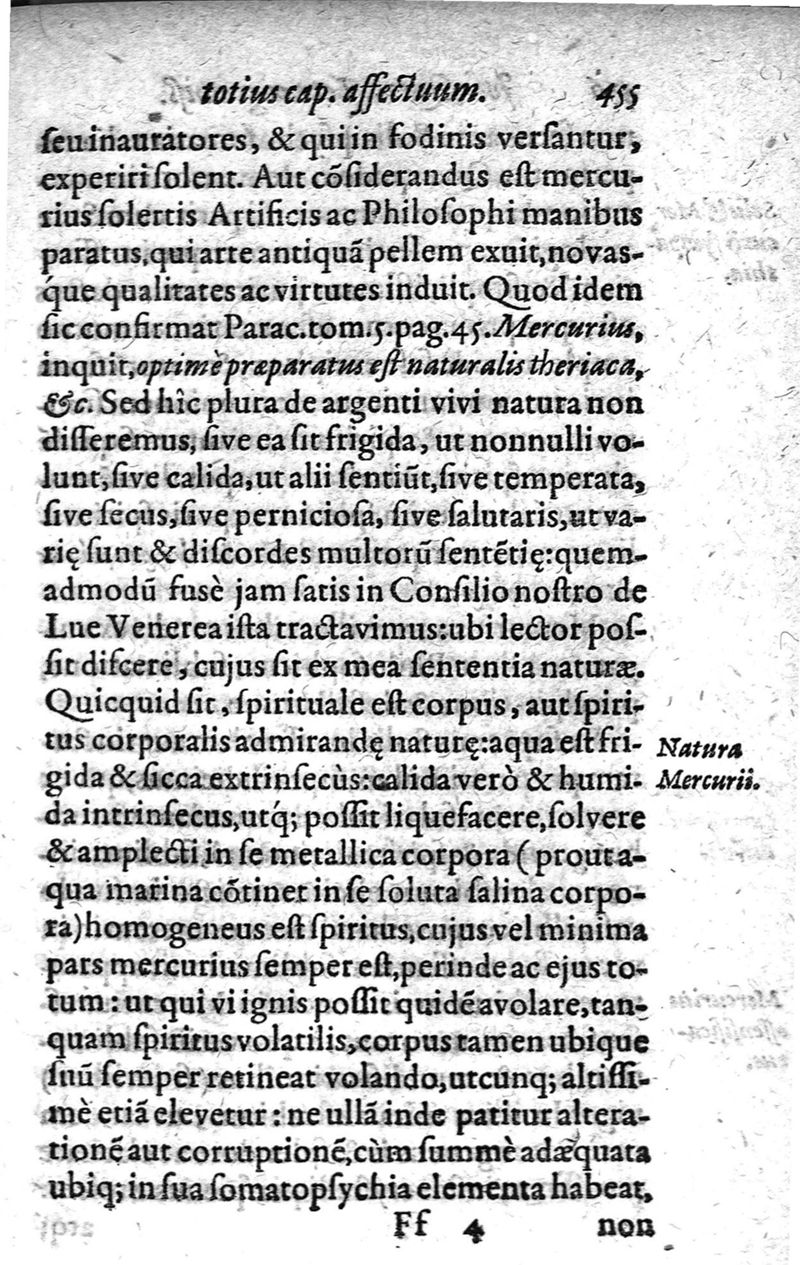 totius cap. affectuum. 455
ſeu inauratores, & qui in fodinis verſantur,
experiri ſolent. Aut cõſiderandus eſt mercu-
rius ſolertis Artificis ac Philoſophi manibus
paratus, qui arte antiquã pellem exuit, novas-
q́ue qualitates ac virtutes induit. Quod idem
ſic confirmat Parac. tom. 5. pag. 45. Mercurius,
inquit, optimè præparatus eſt naturalis theriaca,
&c. Sed hîc plura de argenti vivi natura non
diſſeremus, ſive ea ſit frigida, ut nonnulli vo-
lunt, ſive calida, ut alii ſentiũt, ſive temperata,
ſive ſecus, ſive pernicioſa, ſive ſalutaris, ut va-
rię ſunt & diſcordes multorũ ſentẽtię: quem-
admodũ fusè jam ſatis in Conſilio noſtro de
Lue Venerea iſta tractavimus: ubi lector poſ-
ſit diſcere, cujus ſit ex mea ſententia naturæ.
Quicquid ſit, ſpirituale eſt corpus, aut ſpiri-
tus corporalis admirandę naturę: aqua eſt fri-
Natura
gida & ſicca extrinſecùs: calida verò & humi-
Mercurii.
da intrinſecus, utq́; poſſit liquefacere, ſolvere
& amplecti in ſe metallica corpora (prout a-
qua marina cõtinet in ſe ſoluta ſalina corpo-
ra) homogeneus eſt ſpiritus, cujus vel minima
pars mercurius ſemper eſt, perinde ac ejus to-
tum: ut qui vi ignis poſſit quidẽ avolare, tan-
quam ſpiritus volatilis, corpus tamen ubique
ſuũ ſemper retineat volando, utcunq; altiſſi-
mè etiã elevetur: ne ullã inde patitur altera-
tionẽ aut corruptionẽ, cùm ſummè adæquata
ubiq; in ſua ſomatopſychia elementa habeat,
Ff 4 non